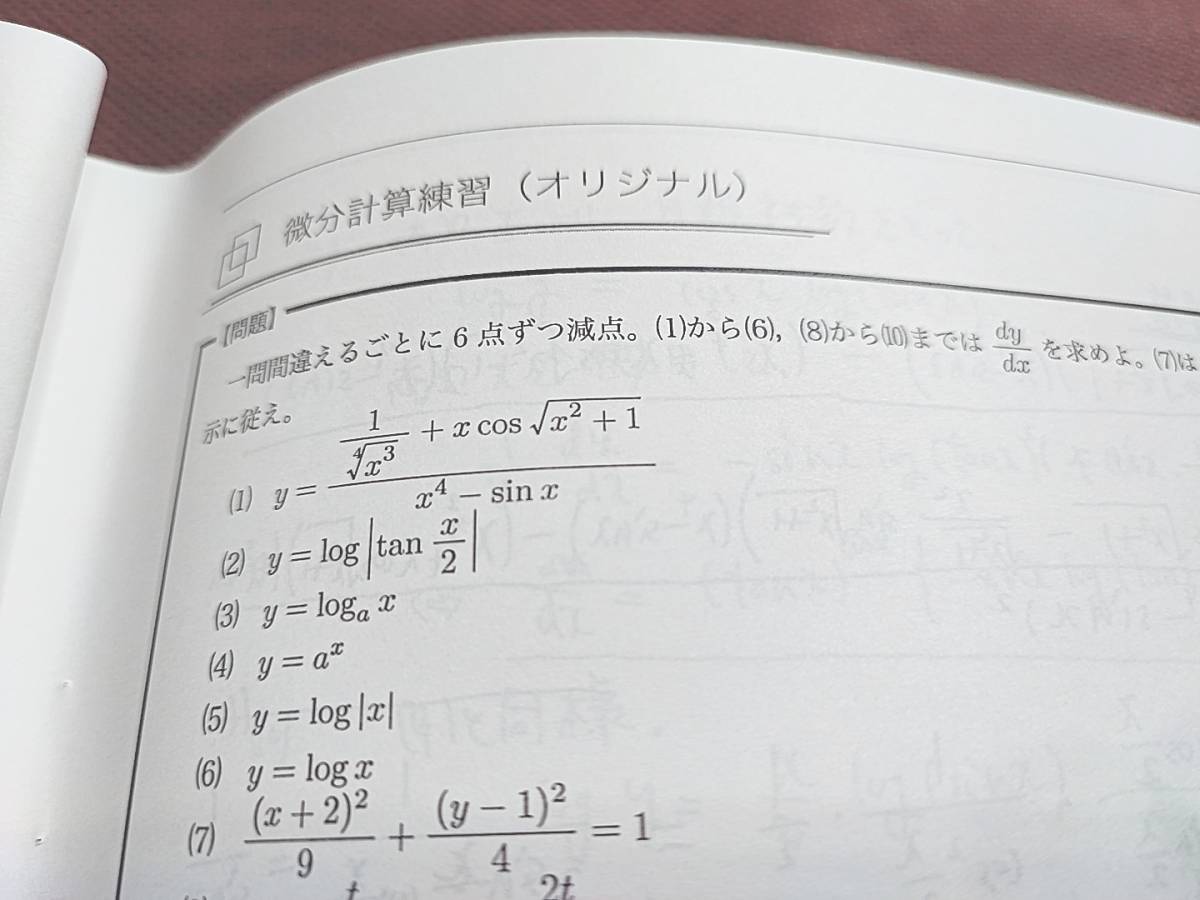 微分計算練習（オリジナル）
【問題】
一問間違えるごとに 6 点ずつ減点。(1)から(6), (8)から(10)までは dy/dx を求めよ。(7)は
示に従え。
(1) y = (1/∜(x³) + x cos √(x² + 1)) / (x⁴ − sin x)
(2) y = log |tan x/2|
(3) y = logₐ x
(4) y = aˣ
(5) y = log |x|
(6) y = log x
(7) (x + 2)²/9 + (y − 1)²/4 = 1
t 2t